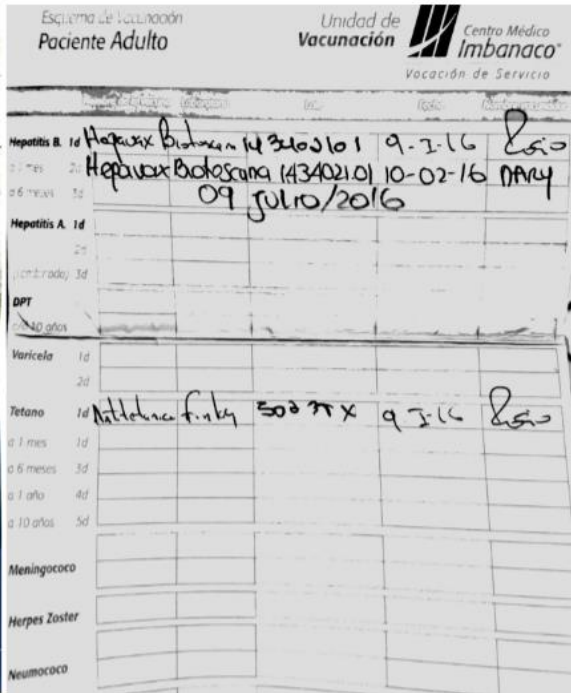 Esquema de Vacunación
Paciente Adulto
Unidad de
Vacunación
Centro Médico
Imbanaco
Vocación de Servicio
Hepatitis B. 1d Hepavax 9-I-16 Rocio
a 1 mes 2d Hepavax Biotoscana 143402101 10-02-16 DARY
a 6 meses 3d 09 JULIO/2016
Hepatitis A. 1d
2d
3d
DPT
c/o 10 años
Varicela 1d
2d
Tetano 1d 9-I-16 Rocio
a 1 mes 1d
a 6 meses 3d
a 1 año 4d
a 10 años 5d
Meningococo
Herpes Zoster
Neumococo